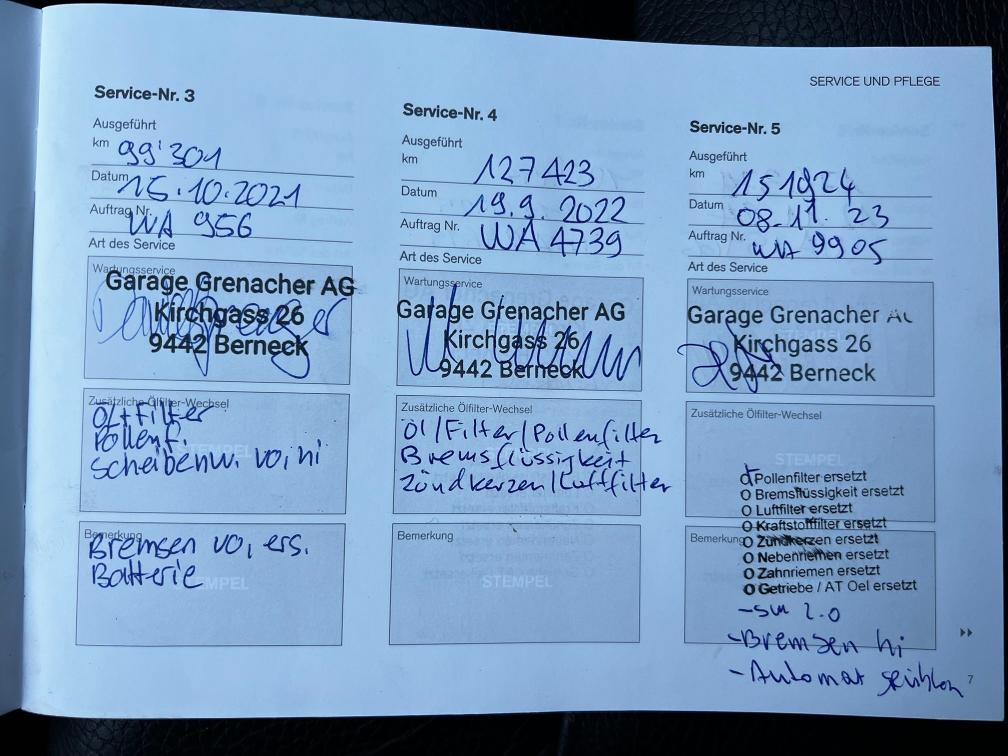 SERVICE UND PFLEGE
Service-Nr. 3
Ausgeführt
km 99'301
Datum 15.10.2021
Auftrag Nr. WA 956
Art des Service
Wartungsservice
Garage Grenacher AG
Kirchgass 26
9442 Berneck
Zusätzliche Ölfilter-Wechsel
Öl+Filter
Pollenf.
Scheibenw. vo, hi
STEMPEL
Bemerkung
Bremsen vo, ers.
Batterie
STEMPEL
Service-Nr. 4
Ausgeführt
km 127423
Datum 19.9.2022
Auftrag Nr. WA 4739
Art des Service
Wartungsservice
Garage Grenacher AG
Kirchgass 26
9442 Berneck
Zusätzliche Ölfilter-Wechsel
Öl/Filter/Pollenfilter
Bremsflüssigkeit
Zündkerzen/Luftfilter
Bemerkung
STEMPEL
Service-Nr. 5
Ausgeführt
km 151924
Datum 08.11.23
Auftrag Nr. WA 9905
Art des Service
Wartungsservice
Garage Grenacher AG
Kirchgass 26
9442 Berneck
Zusätzliche Ölfilter-Wechsel
STEMPEL
Pollenfilter ersetzt
O Bremsflüssigkeit ersetzt
O Luftfilter ersetzt
O Kraftstofffilter ersetzt
Bemerkung
O Zündkerzen ersetzt
O Nebenriemen ersetzt
O Zahnriemen ersetzt
O Getriebe / AT Oel ersetzt
2.0
-Bremsen hi
-Automat spühlen
7